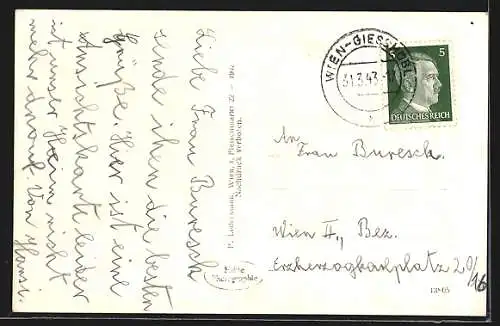 Liebe Frau Buresch
sende ihen die besten
Grüße. Hier ist eine
Ansichtskarte leider
ist unser Heim nicht
mehr drauf. Von Hansi.
P. Ledermann, Wien, I, Fleischmarkt 22 —
Nachdruck verboten.
Echte
Photographie
WIEN-GIESSHÜBL
31.3.43
5
DEUTSCHES REICH
An
Frau Buresch.
Wien II., Bez.
Erzherzogkarlplatz 20/16